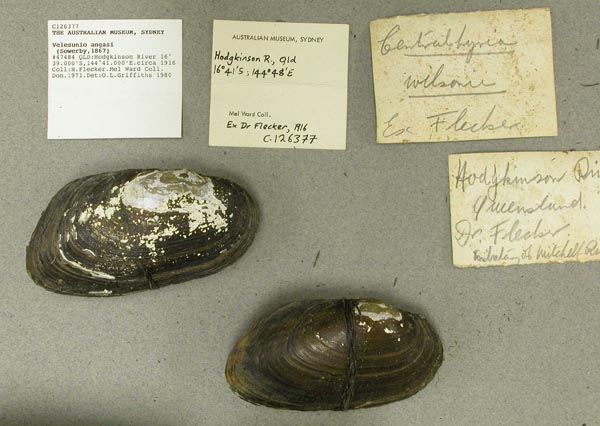 C126377
THE AUSTRALIAN MUSEUM, SYDNEY
Velesunio angasi
(Sowerby,1867)
#47484 QLD:Hodgkinson River 16°
39.000'S,144°41.000'E.circa 1916
Coll:H.Flecker.Mel Ward Coll.
Don.1971.Det:O.L.Griffiths 1980
AUSTRALIAN MUSEUM, SYDNEY
Hodgkinson R, Qld
16°41'S; 144°48'E
Mel Ward Coll.
Ex Dr Flecker, 1916
C.126377
Centralhyria
wilsonii
Ex Flecker
Hodgkinson Riv
Queensland.
Dr. Flecker
Mitchell